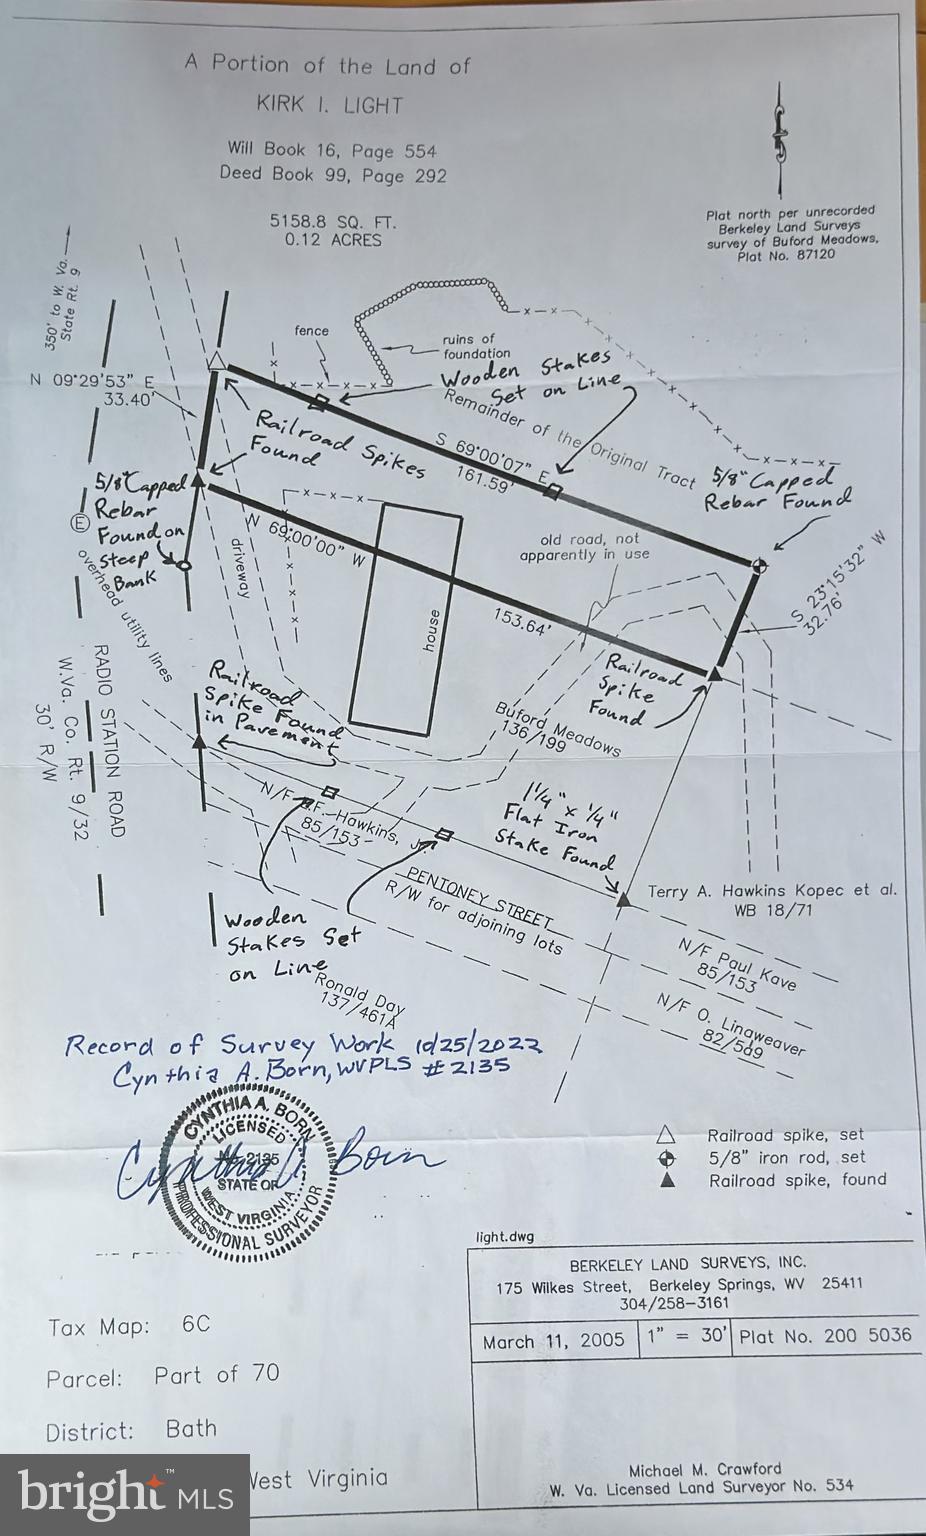 A Portion of the Land of
KIRK I. LIGHT
Will Book 16, Page 554
Deed Book 99, Page 292
5158.8 SQ. FT.
0.12 ACRES
Plat north per unrecorded
Berkeley Land Surveys
survey of Buford Meadows,
Plat No. 87120
350' to W. Va.
State Rt. 9
fence
ruins of
foundation
Wooden Stakes
Set on Line
N 09°29'53" E
33.40'
Remainder of the Original Tract
Railroad Spikes
Found
S 69°00'07" E
161.59'
5/8" Capped
Rebar Found
5/8" Capped
Rebar
Found on
Steep
Bank
E
N 69°00'00" W
old road, not
apparently in use
S 23°15'32" W
32.76'
overhead utility lines
driveway
house
153.64'
RADIO STATION ROAD
W.Va. Co. Rt. 9/32
30' R/W
Railroad
Spike Found
in Pavement
Railroad
Spike
Found
Buford Meadows
136/199
N/F F. Hawkins, Jr.
85/153
1 1/4" x 1/4"
Flat Iron
Stake Found
PENTONEY STREET
R/W for adjoining lots
Terry A. Hawkins Kopec et al.
WB 18/71
Wooden
Stakes Set
on Line
N/F Paul Kave
85/153
Ronald Day
137/461A
N/F O. Linaweaver
82/569
Record of Survey Work 10/25/2022
Cynthia A. Born, WVPLS #2135
CYNTHIA A. BORN
LICENSED
No. 2135
STATE OF
WEST VIRGINIA
PROFESSIONAL SURVEYOR
Cynthia A Born
Railroad spike, set
5/8" iron rod, set
Railroad spike, found
light.dwg
BERKELEY LAND SURVEYS, INC.
175 Wilkes Street, Berkeley Springs, WV 25411
304/258-3161
March 11, 2005 1" = 30' Plat No. 200 5036
Tax Map: 6C
Parcel: Part of 70
District: Bath
West Virginia
Michael M. Crawford
W. Va. Licensed Land Surveyor No. 534
bright™ MLS